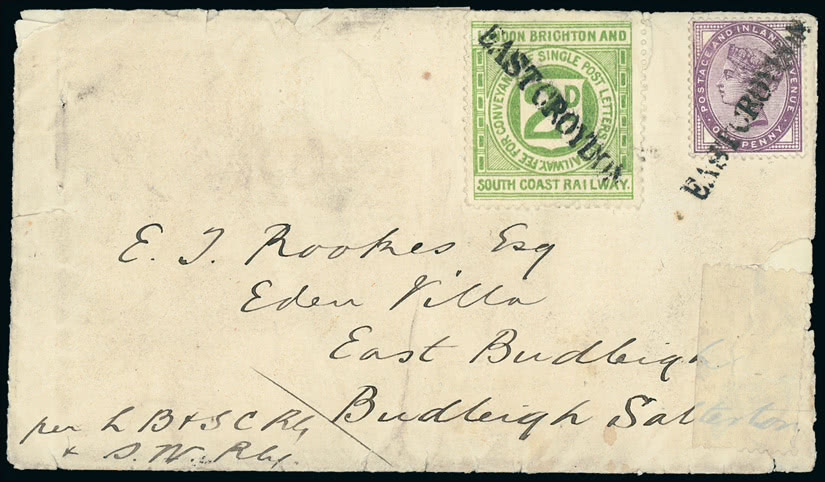 LONDON BRIGHTON AND
FEE FOR CONVEYANCE OF SINGLE POST LETTERS BY RAILWAY.
2D
SOUTH COAST RAILWAY.
EAST CROYDON
POSTAGE AND INLAND REVENUE
ONE PENNY
EAST CROYDON
E. J. Rookes Esq
Eden Villa
East Budleigh
Budleigh Salterton
per L B & S C Rly
& S. W. Rly.